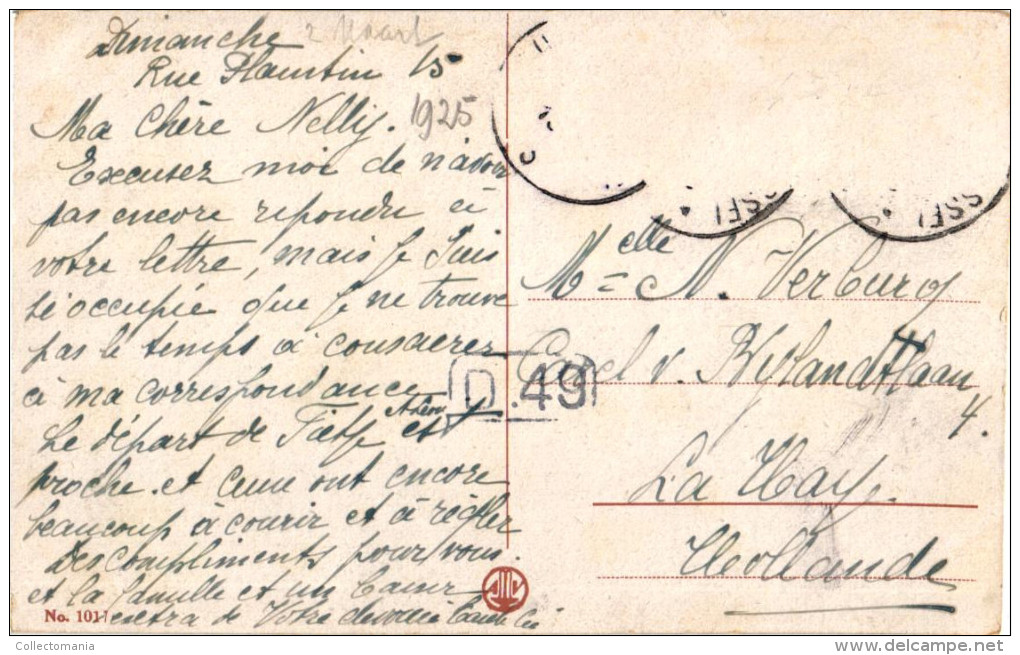 Dimanche 2 Maart
Rue Plantin 15
1925
Ma Chère Nelly.
Excusez moi de n'avoir
pas encore repondu à
votre lettre, mais je suis
si occupée que je ne trouve
pas le temps à consacrer
à ma correspondance
Le départ de et
proche et ont encore
beaucoup à courir et à régler
Des compliments pour vous.
et la famille et un baiser
extra de Votre devouée
No. 1017
SSEL
SSEL
Melle N. Verburg
Carel v. Bylandtlaan
4.
D.49
La Haye
Hollande
Collectomania
delcampe.net